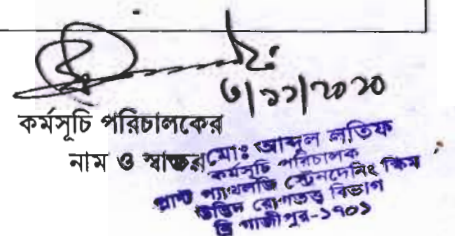 ৩/১১/২০২০
কর্মসূচি পরিচালকের
নাম ও স্বাক্ষর
মোঃ আব্দুল লতিফ
কর্মসূচি পরিচালক
প্লান্ট প্যাথলজি
উদ্ভিদ রোগতত্ত্ব বিভাগ
ব্রি গাজীপুর-১৭০১